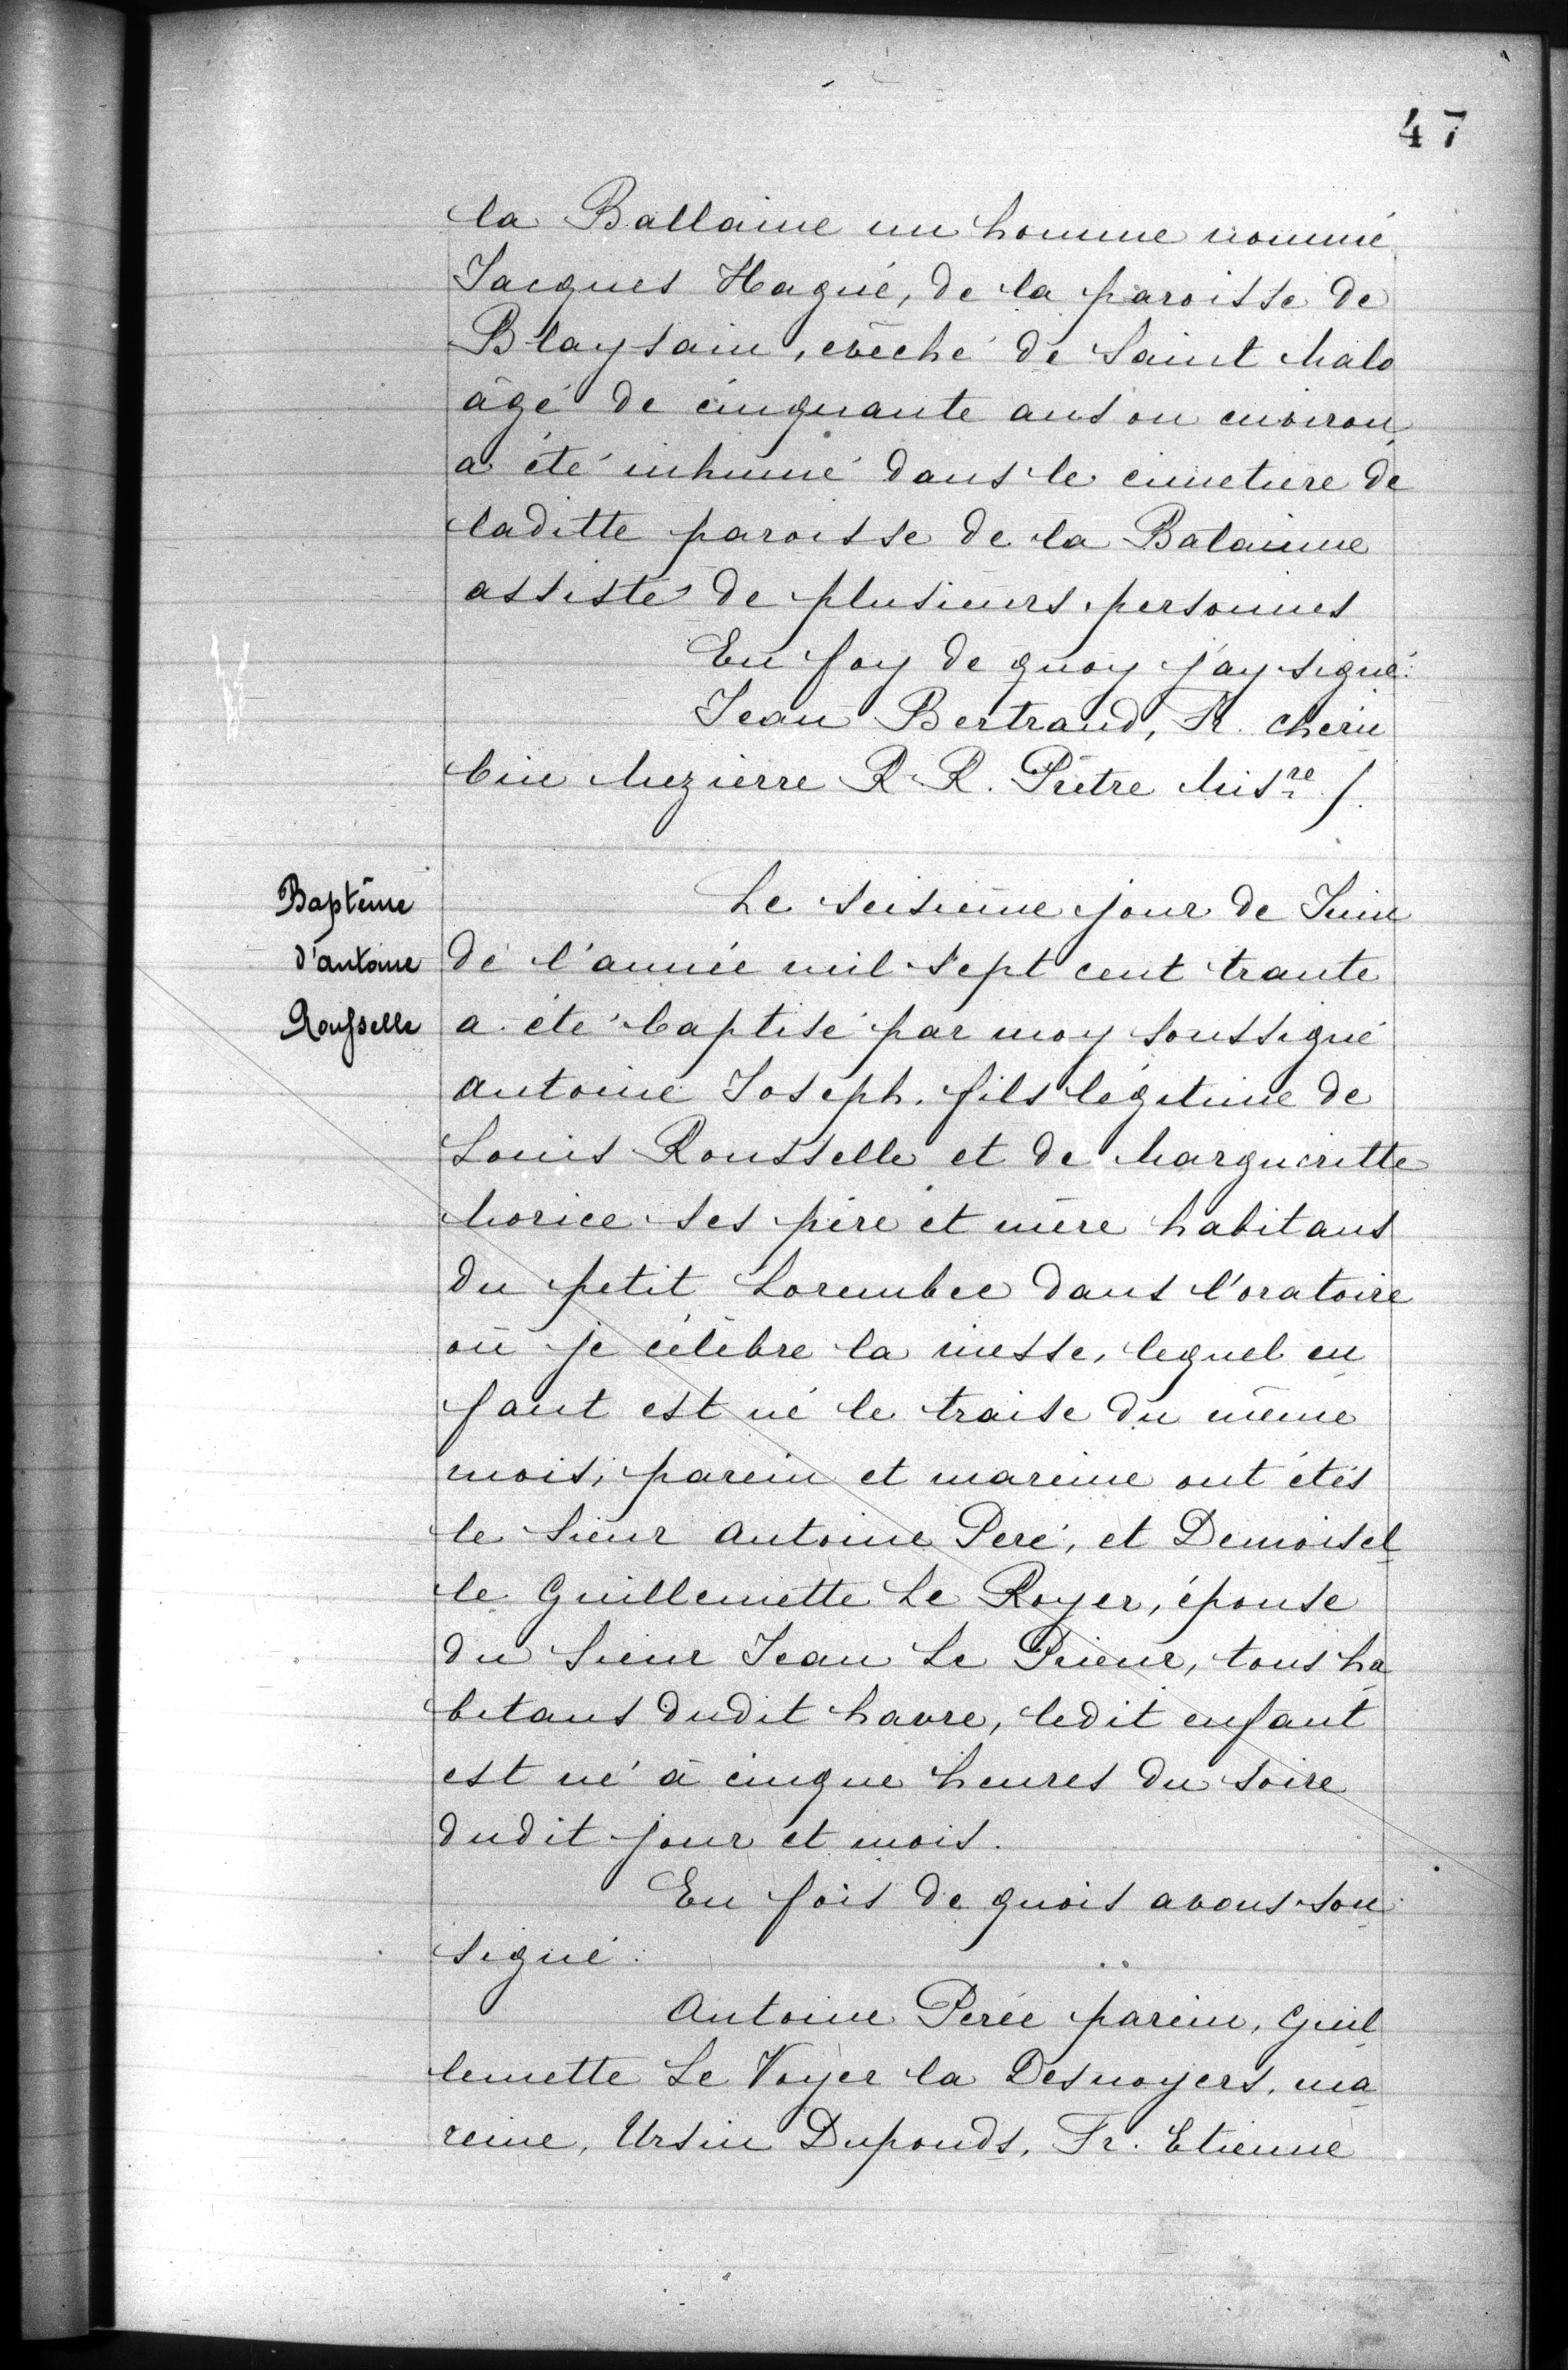 47
la Ballaine un homme nommé
Jacques Hagué, de la paroisse de
Blaysain, evêché de Saint Malo
âgé de cinquante ans ou environ
a été inhumé dans le cimetiere de
laditte paroisse de la Balainne
assisté de plusieurs personnes
En foy de quoy j'ay signé:
Jean Bertrand, Fr. cheru
bin Mezierre R. R. Prêtre Misre /.
Baptême
d'antoine
Rousselle
Le seisieme jour de Juin
de l'année mil sept cent trante
a été baptisé par moy soussigné
antoine Joseph, fils légitime de
Louis Rousselle et de Margueritte
Morice ses père et mère habitans
du petit Lorembec dans l'oratoire
où je célèbre la messe, lequel en
fant est né le traise du même
mois; parein et mareine ont étés
le Sieur antoine Peré, et Demoisel
le Guillemette Le Royer, épouse
du Sieur Jean Le Prieur, tous ha
bitans dudit havre, ledit enfant
est né à cinque heures du soire
dudit jour et mois.
En fois de quois avons sou
signé:
Antoine Perée parein, Guil
lemette Le Voyer la Desnoyers, ma
reine, Ursin Duponds, Fr. Etienne